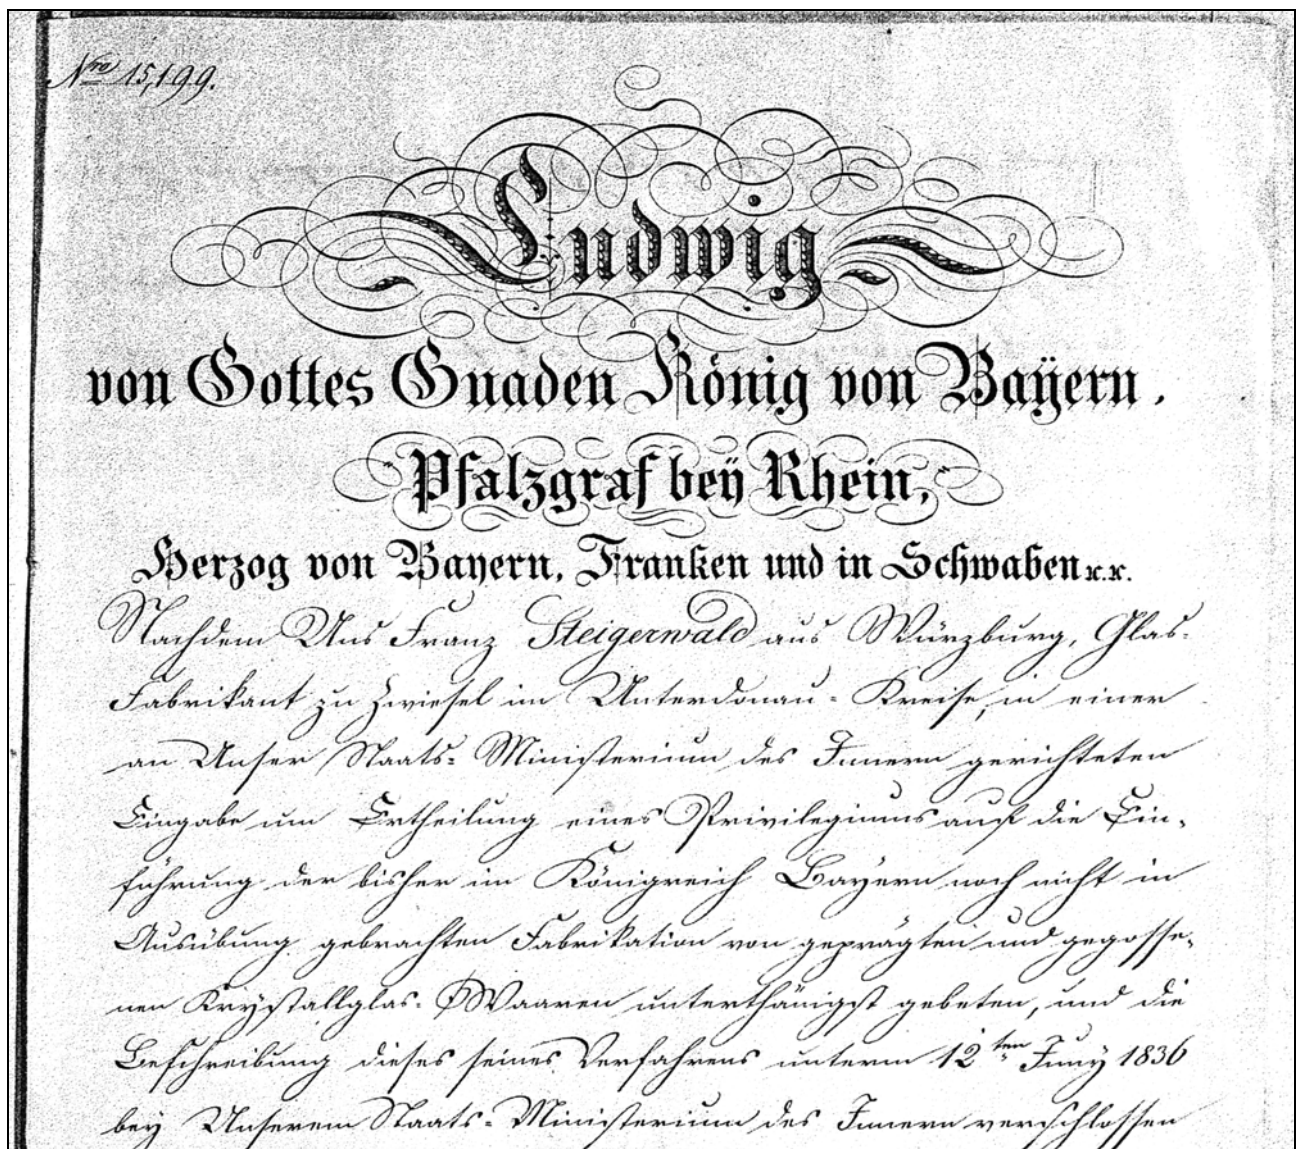 Nro 15,199.
Ludwig
von Gottes Gnaden König von Baÿern,
Pfalzgraf beÿ Rhein,
Herzog von Bayern, Franken und in Schwaben x.x.
Nachdem Uns Franz Steigerwald aus Würzburg, Glas-
Fabrikant zu Zwiesel im Unterdonau-Kreise, in einer
an Unser Staats-Ministerium des Innern gerichteten
Eingabe um Ertheilung eines Privilegiums auf die Ein-
führung der bisher im Königreich Bayern noch nicht in
Ausübung gebrachten Fabrikation von geprägten und gegosse-
nen Krystallglas-Waaren unterthänigst gebeten, und die
Beschreibung dieses seines Verfahrens unterm 12ten Juny 1836
bey Unserem Staats-Ministerium des Innern verschlossen